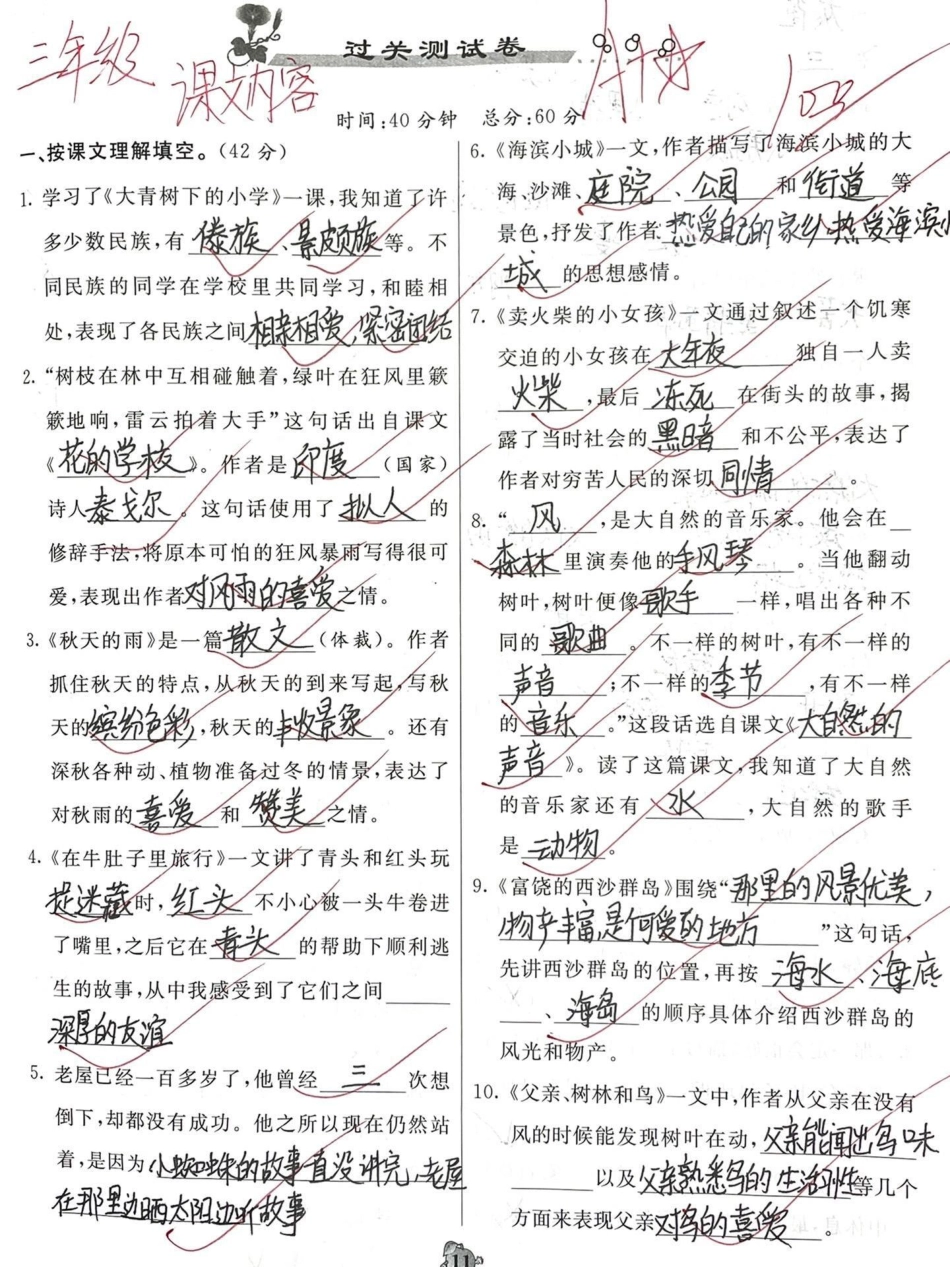 过关测试卷
三年级
课文内容
时间:40分钟 总分:60分
一、按课文理解填空。(42分)
1. 学习了《大青树下的小学》一课,我知道了许
多少数民族,有 傣族 、景颇族等。不
同民族的同学在学校里共同学习,和睦相
处,表现了各民族之间相亲相爱,紧密团结
2. “树枝在林中互相碰触着,绿叶在狂风里簌
簌地响,雷云拍着大手”这句话出自课文
《花的学校》。作者是 印度 (国家)
诗人泰戈尔。这句话使用了 拟人 的
修辞手法,将原本可怕的狂风暴雨写得很可
爱,表现出作者对风雨的喜爱之情。
3. 《秋天的雨》是一篇散文(体裁)。作者
抓住秋天的特点,从秋天的到来写起,写秋
天的缤纷色彩,秋天的丰收景象。还有
深秋各种动、植物准备过冬的情景,表达了
对秋雨的喜爱 和 赞美 之情。
4. 《在牛肚子里旅行》一文讲了青头和红头玩
捉迷藏时,红头 不小心被一头牛卷进
了嘴里,之后它在 青头 的帮助下顺利逃
生的故事,从中我感受到了它们之间
深厚的友谊
5. 老屋已经一百多岁了,他曾经 三 次想
倒下,却都没有成功。他之所以现在仍然站
着,是因为小蜘蛛的故事一直没讲完,老屋
在那里边晒太阳边听故事
6. 《海滨小城》一文,作者描写了海滨小城的大
海、沙滩、庭院 、公园 和 街道 等
景色,抒发了作者热爱自己的家乡,热爱海滨小
城 的思想感情。
7. 《卖火柴的小女孩》一文通过叙述一个饥寒
交迫的小女孩在 大年夜 独自一人卖
火柴 ,最后 冻死 在街头的故事,揭
露了当时社会的 黑暗 和不公平,表达了
作者对穷苦人民的深切同情 。
8. “ 风 ,是大自然的音乐家。他会在
森林里演奏他的手风琴 。当他翻动
树叶,树叶便像歌手 一样,唱出各种不
同的 歌曲 。不一样的树叶,有不一样的
声音 ;不一样的季节 ,有不一样
的 音乐 。”这段话选自课文《大自然的
声音》。读了这篇课文,我知道了大自然
的音乐家还有 水 ,大自然的歌手
是 动物。
9. 《富饶的西沙群岛》围绕“那里的风景优美,
物产丰富,是个可爱的地方 ”这句话,
先讲西沙群岛的位置,再按 海水 、海底
、海岛 的顺序具体介绍西沙群岛的
风光和物产。
10. 《父亲、树林和鸟》一文中,作者从父亲在没有
风的时候能发现树叶在动,父亲能闻出鸟味
以及父亲熟悉鸟的生活习性等几个
方面来表现父亲对鸟的喜爱 。
11